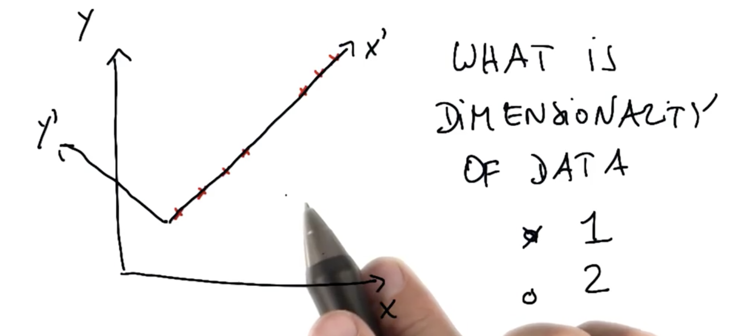 Y
X'
Y'
X
WHAT IS
DIMENSIONALITY
OF DATA
1
2